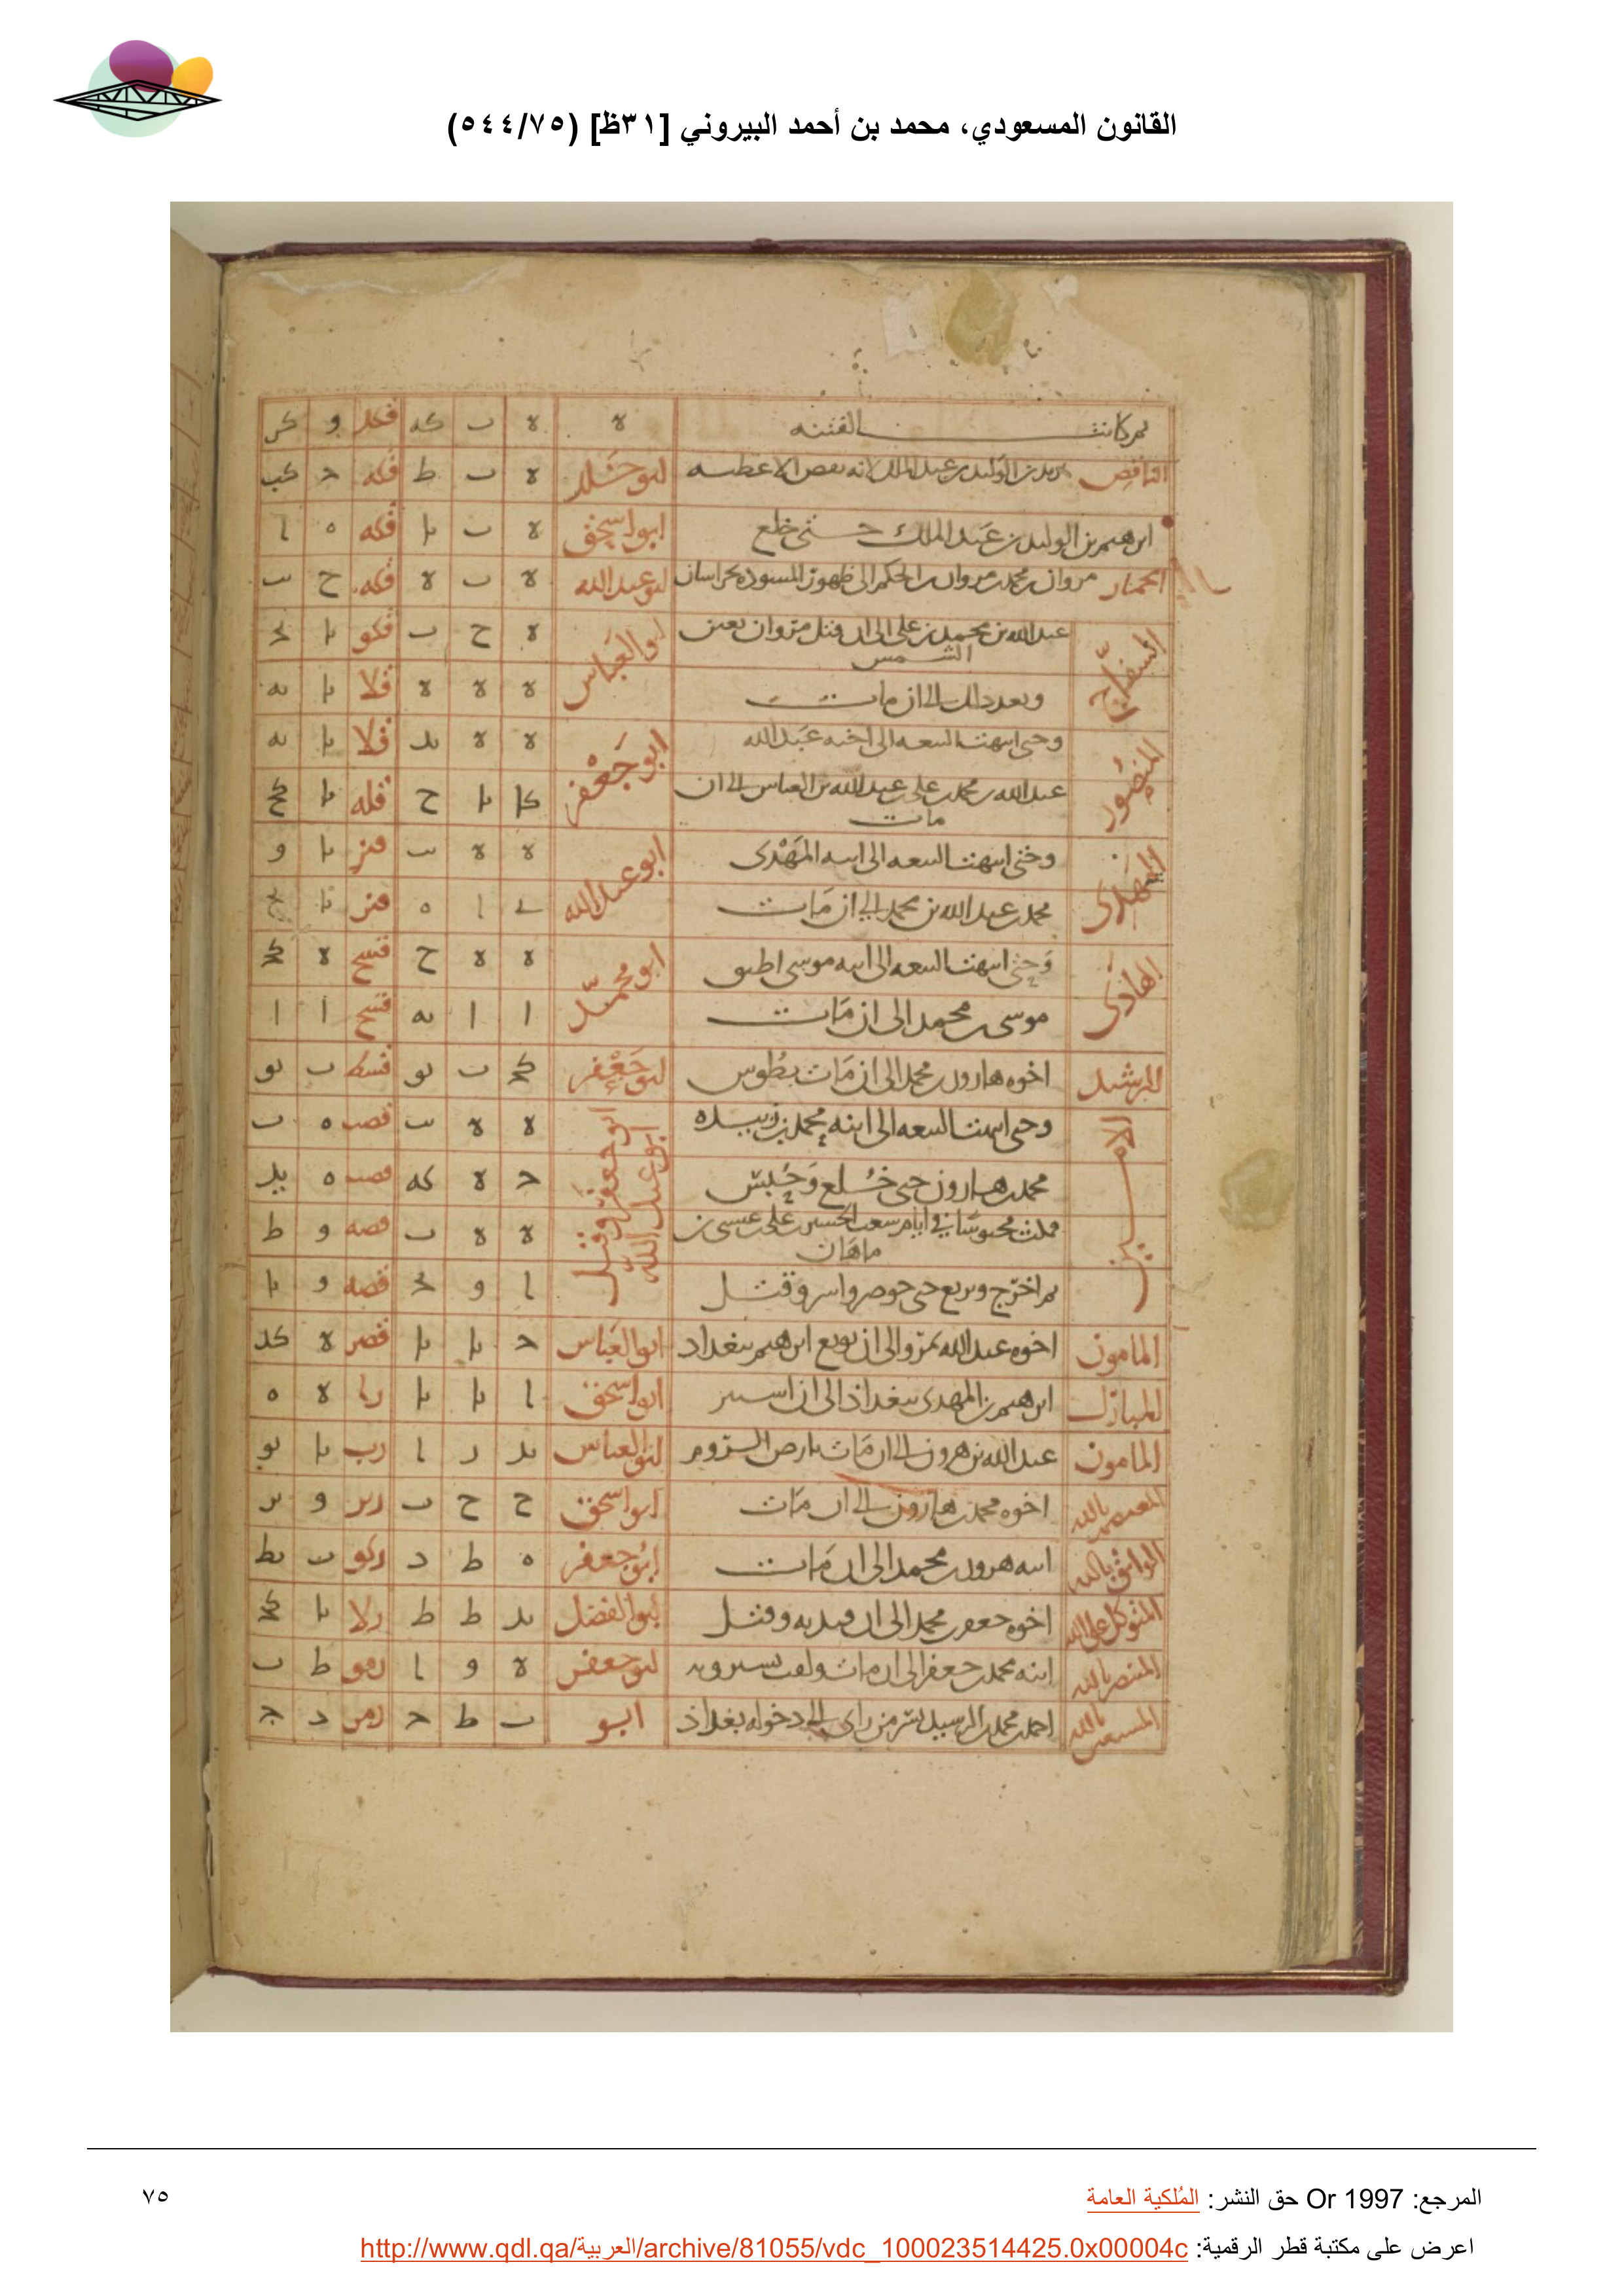 القانون المسعودي، محمد بن أحمد البيروني [٣١ظ] (٥٤٤/٧٥)
الفتنه ه ه ب كه فكد و كر
الناقص ه ب ط فكه ح كب
ابرهيم بن الوليد بن عبد الملك حتى خلع ابو اسحق ه ب يا فكه ه ا
الحمار مروان بن محمد بن مروان بن الحكم الى ظهور المسوده بخراسان ابو عبد الله ه ب ه فكه ح ب
السفاح عبد الله بن محمد بن علي الى ان قتل مروان بعين الشمس ابو العباس ه ح ب فكو يا
وبعد ذلك الى ان مات ه ه ه فلا يا يه
المنصور وحتى انتهت البيعه الى اخيه عبد الله ابو جعفر ه ه يد فلا يا يه
عبد الله بن محمد بن علي بن عبد الله بن العباس الى ان مات كا يا ح فله يا كح
المهدى وحتى انتهت البيعه الى ابنه المهدى ابو عبد الله ه ه ب يا و
محمد بن عبد الله بن محمد الى ان مات ا ه
الهادى وحتى انتهت البيعه الى ابنه موسى ابو محمد ه ه ح قسح ه كح
موسى بن محمد الى ان مات ا ا يه قسح ا ا
الرشيد اخوه هارون بن محمد الى ان مات بطوس ابو جعفر كح ب يو قسط ب يو
الامين وحتى انتهت البيعه الى ابنه محمد بن زبيده ه ه ب قصب ه ب
محمد بن هارون حتى خلع وحبس ابو عبد الله ح ه كه قصب ه يد
فى ايام الحسين بن على بن عيسى بن ماهان ه ه ب قصه و ط
ثم اخرج وبويع حتى حوصر واسر وقتل ا و قصه و يا
المامون اخوه عبد الله بمرو الى ان بويع ابرهيم ببغداد ابو العباس ح يا يا قصر ه كد
المبارك ابرهيم بن المهدى ببغداد الى ان استتر ابو اسحق ا يا يا را ه ه
المامون عبد الله بن هرون الى ان مات بارض الروم ابو العباس يد ا رب يا يو
المعتصم بالله اخوه محمد بن هارون الى ان مات ابو اسحق ح ح ب و
الواثق بالله ابنه هرون بن محمد الى ان مات ابو جعفر ه ط د ركو ب يط
المتوكل على الله اخوه جعفر بن محمد الى ان وقتل ابو الفضل يد ط ط رلا يا كح
المنتصر بالله ابنه محمد بن جعفر الى ان مات ابو جعفر ه و ا رمو ط ب
المستعين بالله احمد بن محمد بن بسر من راى الى دخوله بغداد ابو ب ط ح رمر د ج
المرجع: Or 1997 حق النشر: المُلكية العامة
٧٥
اعرض على مكتبة قطر الرقمية: http://www.qdl.qa/العربية/archive/81055/vdc_100023514425.0x00004c